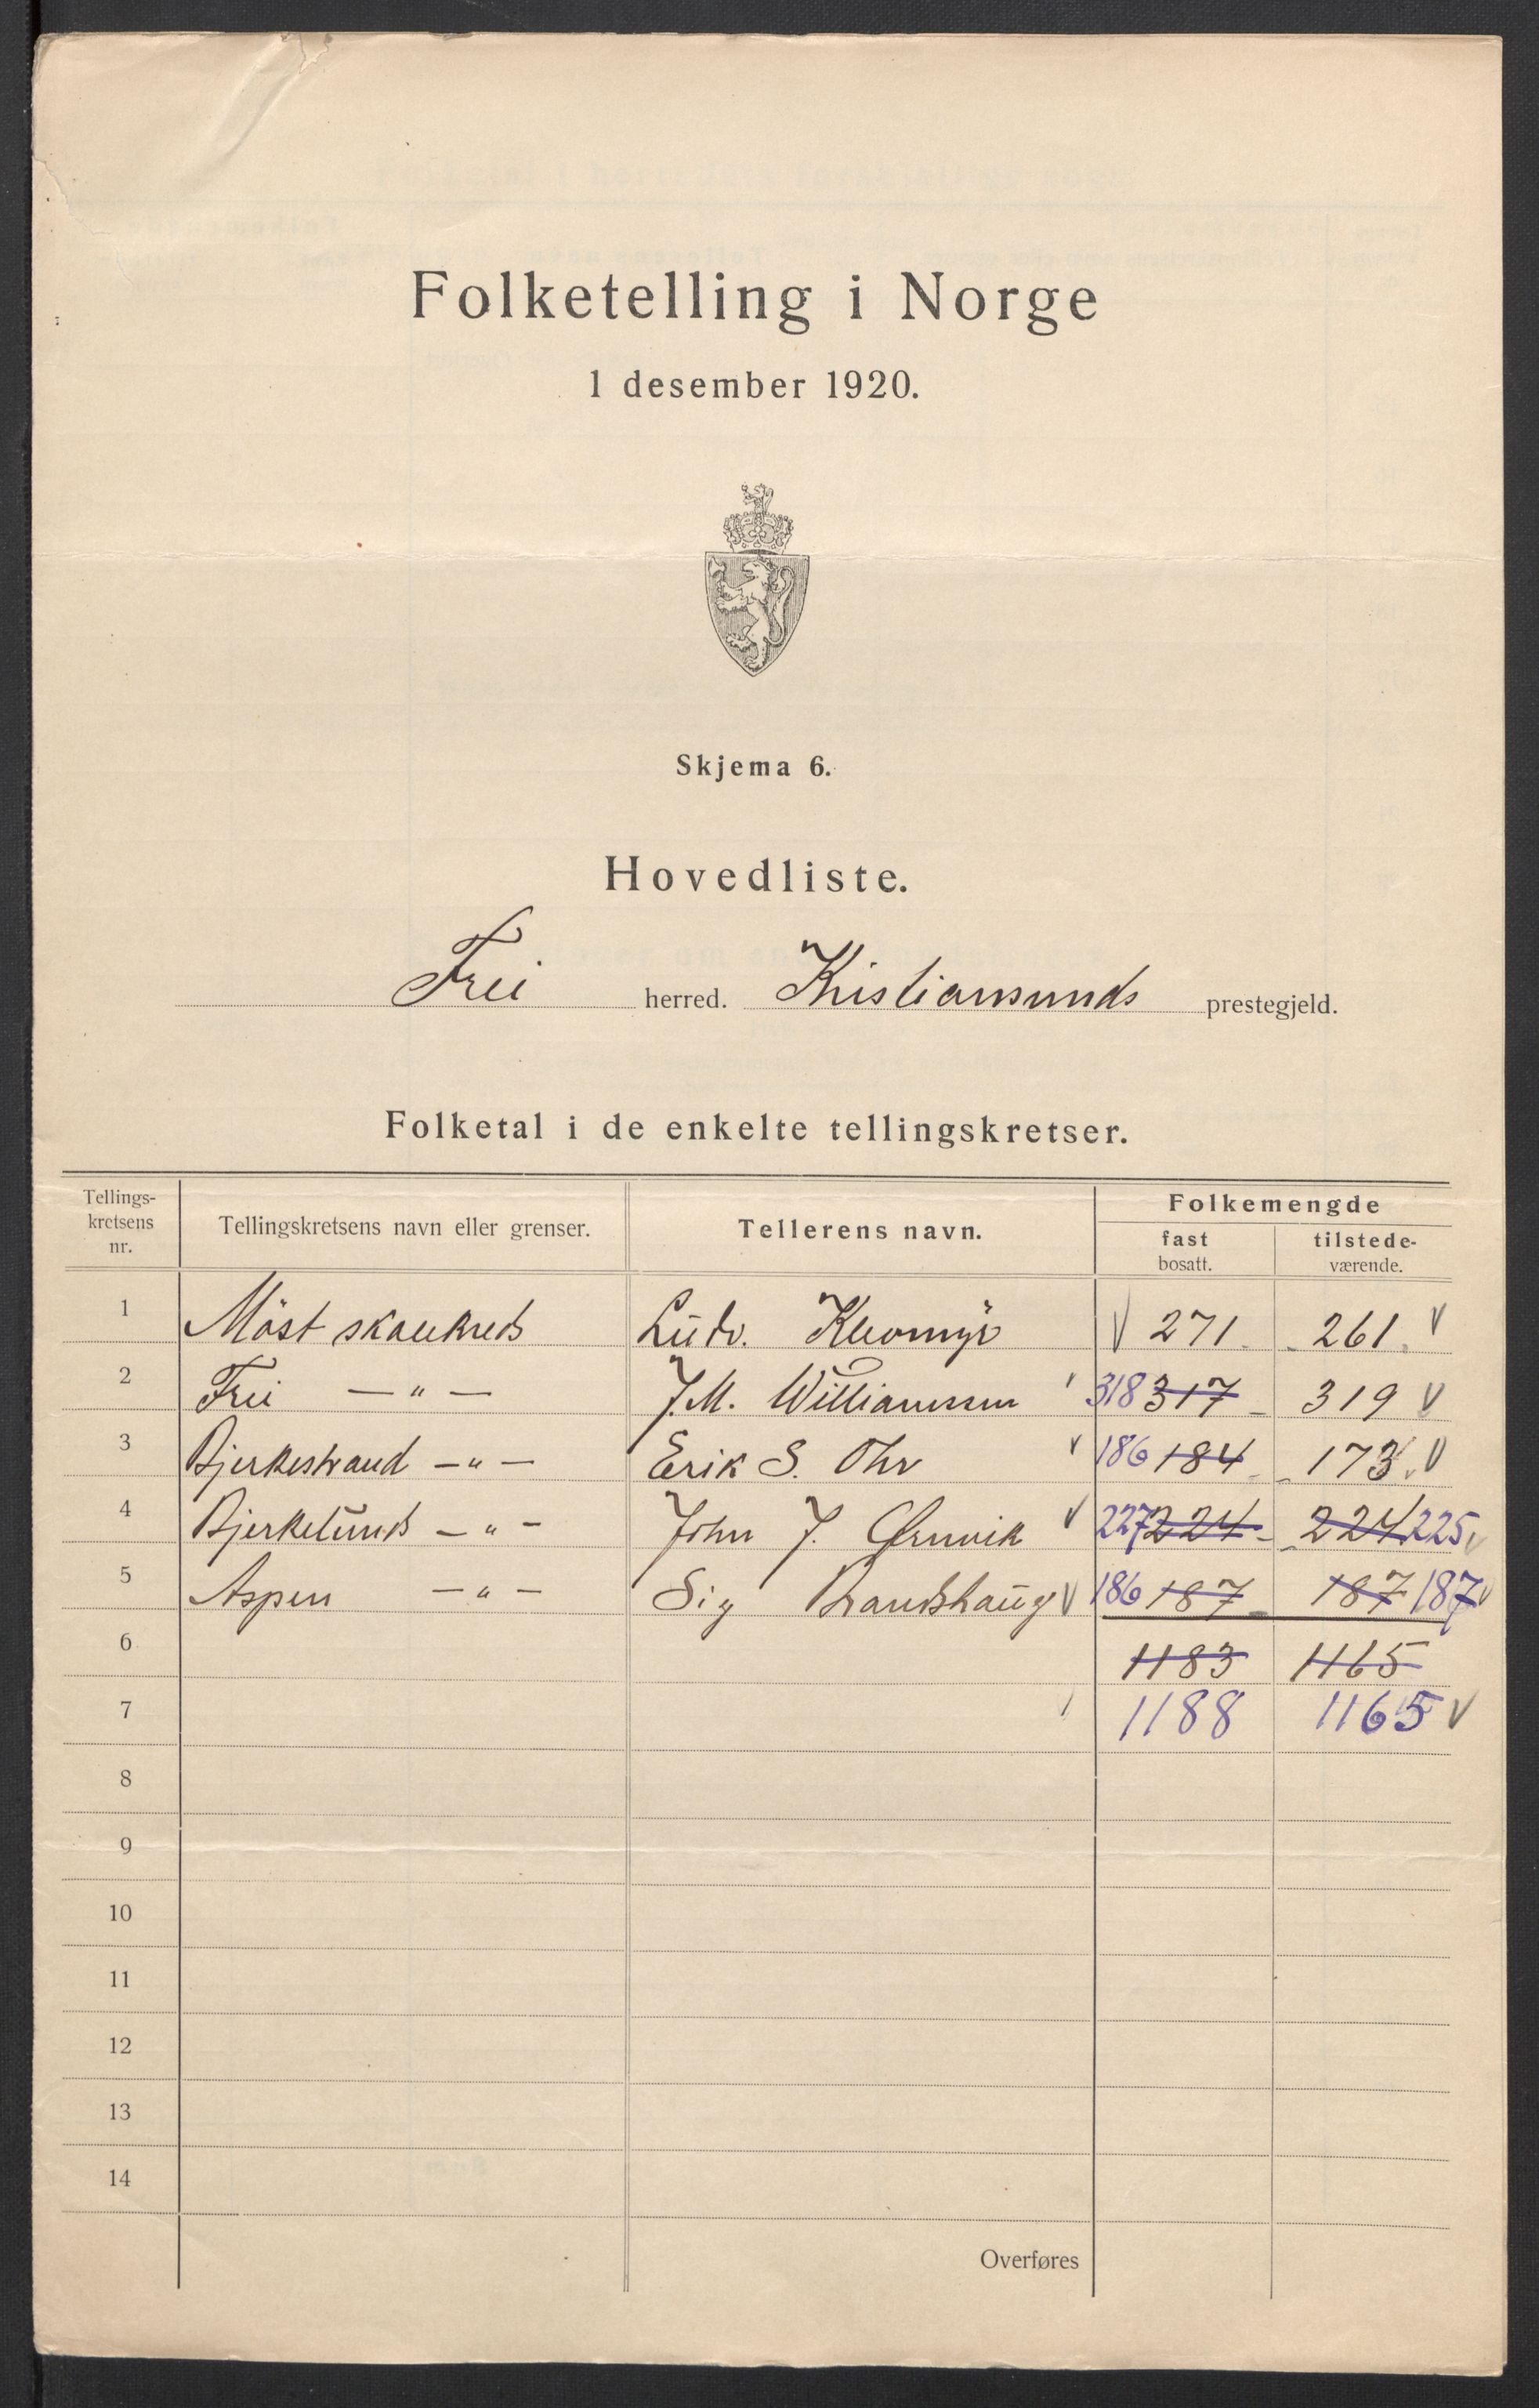 Folketelling i Norge
1 desember 1920.
Skjema 6.
Hovedliste.
Frei herred. Kristiansunds prestegjeld.
Folketal i de enkelte tellingskretser.
Tellings-kretsens nr. Tellingskretsens navn eller grenser. Tellerens navn. Folkemengde
fast bosatt. tilstede-værende.
1 Möst Ludv. 271 261
2 Frei — " — J. M. Williamssen 318 317 319
3 Bjerkestrand — " — Erik S. Ohr 186 184 173
4 Bjerkelund — " — John J. 227 224 224 225
5 Aspen — " — Sig 186 187 187 187
6 1183 1165
7 1188 1165
8
9
10
11
12
13
14
Overføres